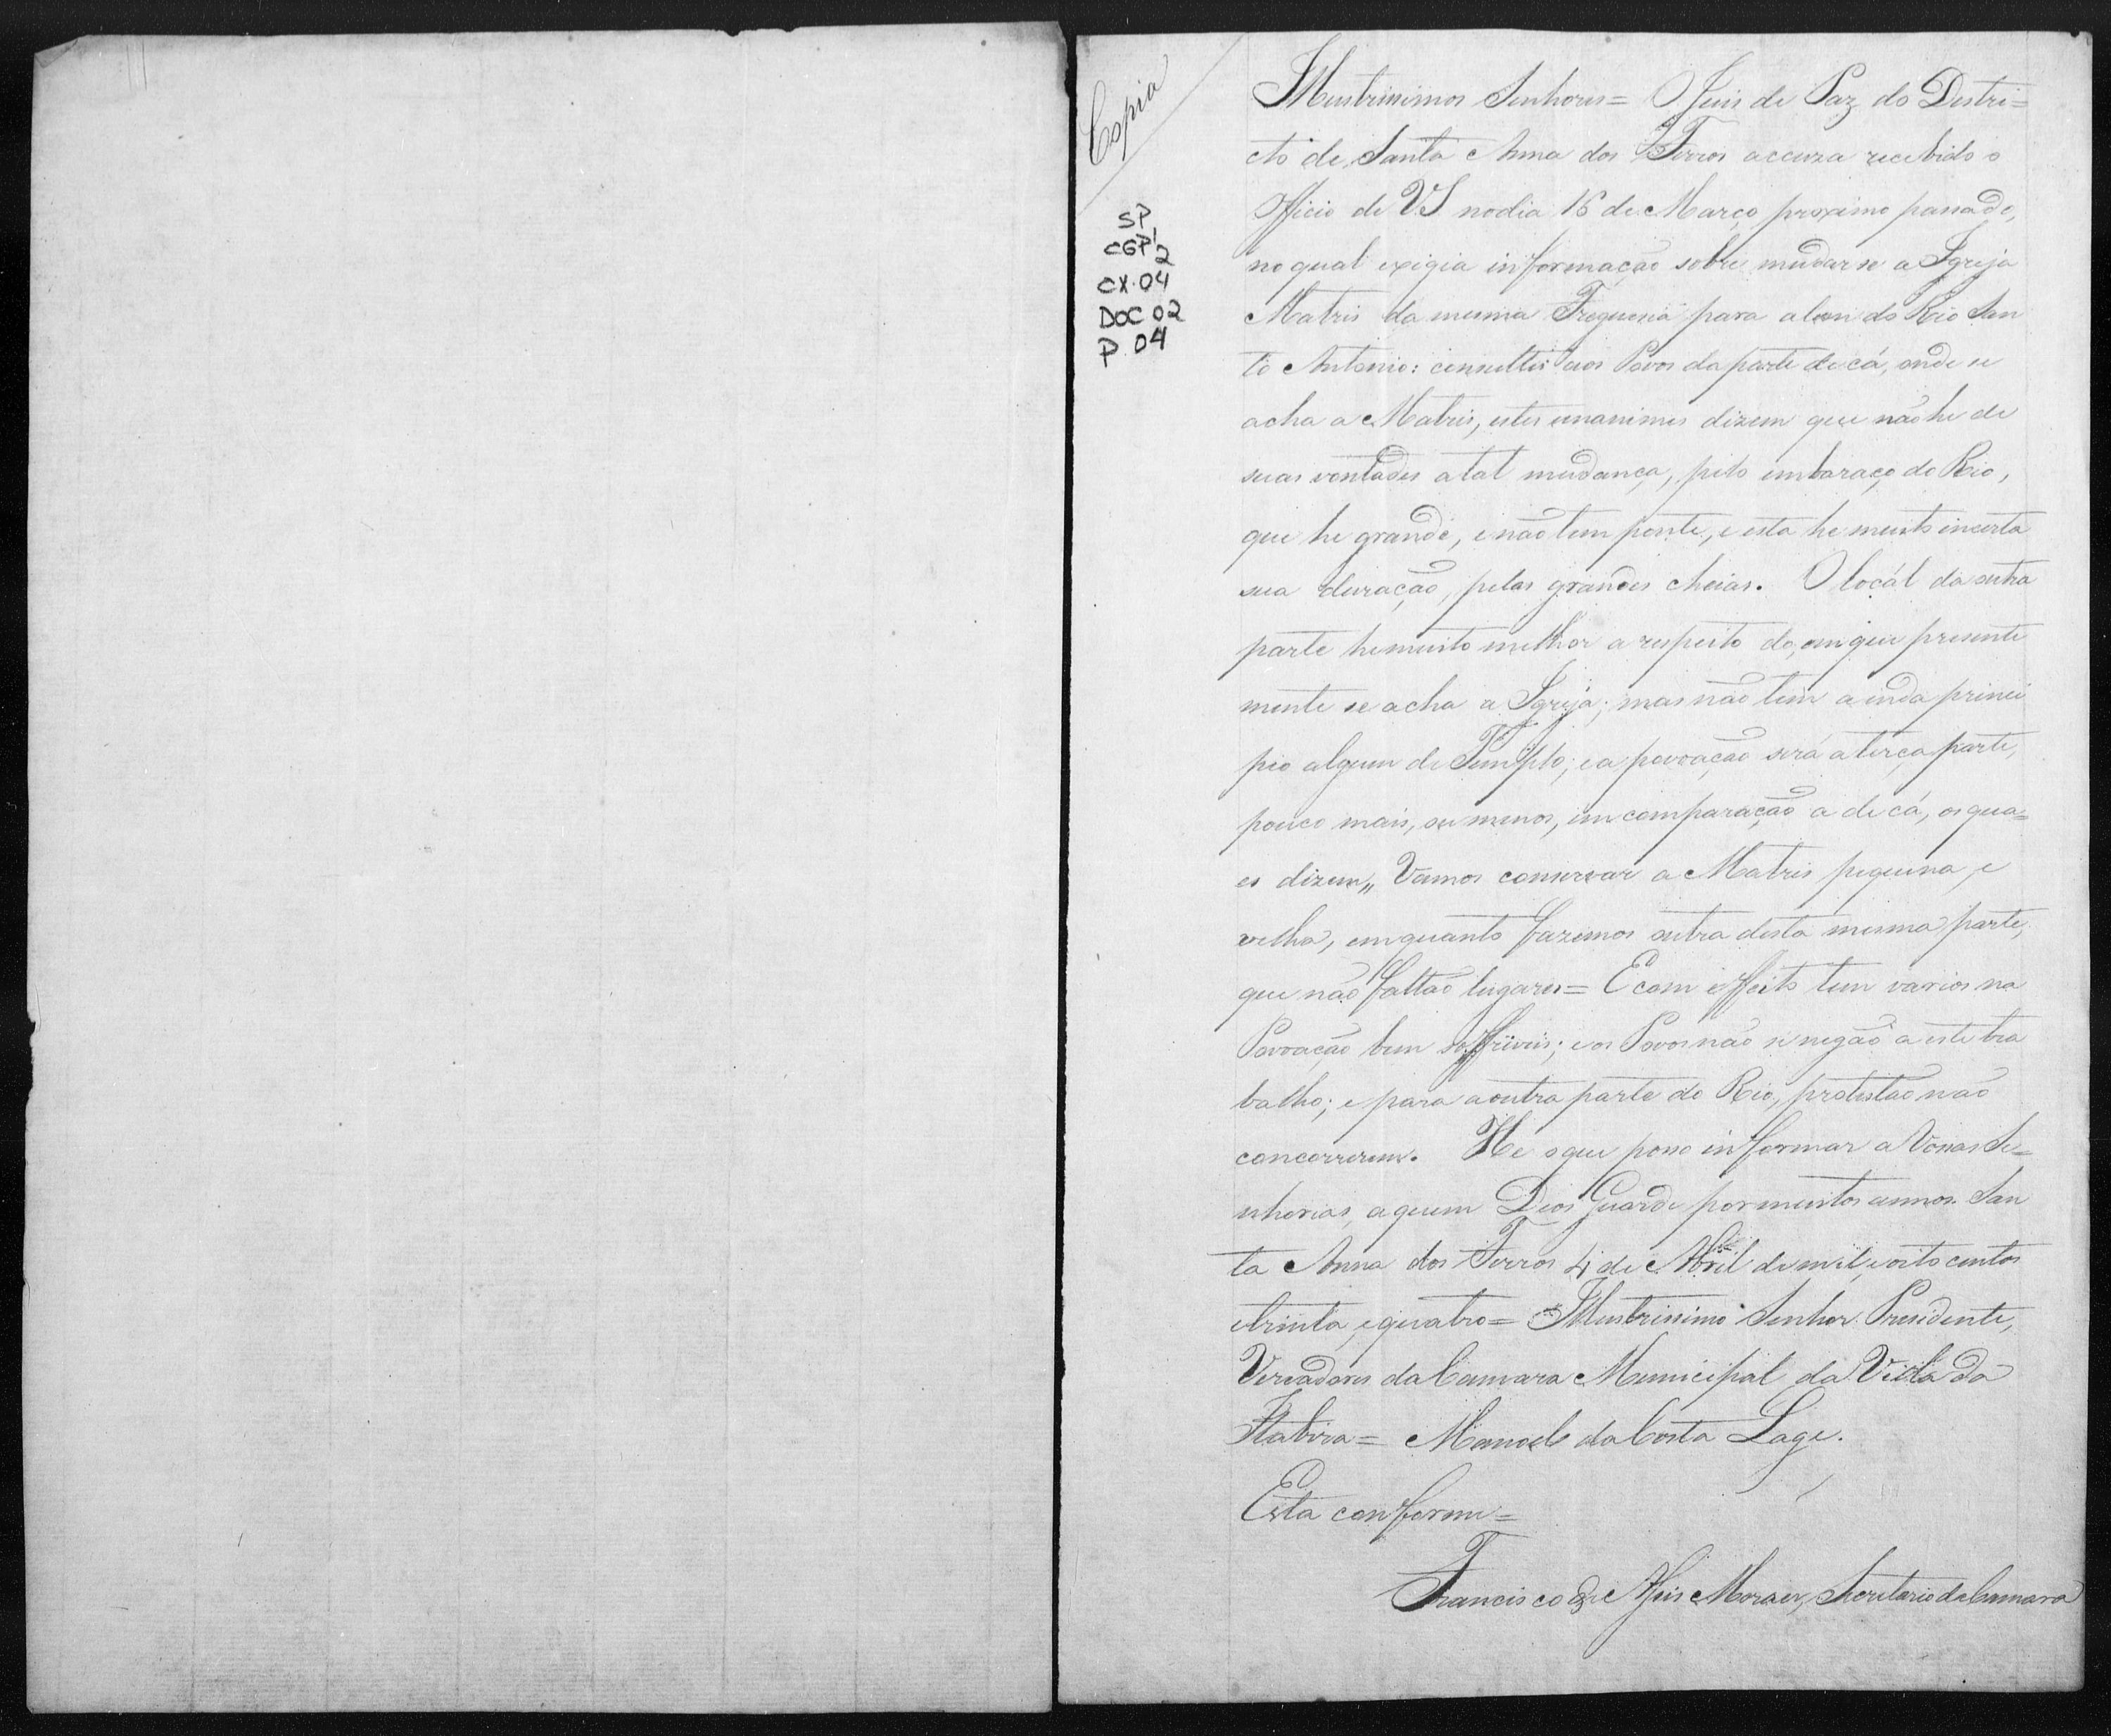 Copia
SP,
CGP¹2
CX.04
DOC 02
P. 04
Illustrissimos Senhores= O Juis de Paz do Destri=
cto de Santa Anna dos Ferros accuza recebido o
Officio de VS no dia 15 de Março proximo passado,
no qual exigia informação sobre mudar se a Igreja
Matris da mesma Freguezia para alem do Rio San
to Antonio: consultei aos Povos da parte de cá, onde se
acha a Matris, estes unanimes dizem que não he de
suas vontades a tal mudança, pelo embaraço do Rio,
que he grande, e não tem ponte, e esta he muito incerta
sua duração, pelas grandes cheias. O locál da outra
parte he muito melhor a respeito do, em que presente
mente se acha a Igreja; mas não tem ainda princi
pio algum de Templo; e a povoação será a terça parte,
pouco mais, ou menos, em comparação a de cá, os qua=
es dizem,, Vamos conservar a Matris pequena, e
velha, emquanto fazemos outra desta mesma parte,
que não faltão lugares= E com effeito tem varios na
Povoação bem soffriveis; e os Povos não se negão a este tra
balho; e para a outra parte do Rio, protestão não
concorrerem. He o que posso informar a Vossas Se=
nhorias, a quem Deos Guarde por muitos annos. San
ta Anna dos Ferros 4 de Abril de mil, e oito centos
e trinta, e quatro= Illustrissimo Senhor Presidente,
Vereadores da Camara Municipal da Villa da
Itabira= Manoel da Costa Lage.
Esta conforme=
Francisco de Assis Moraes, Secretario da Camara